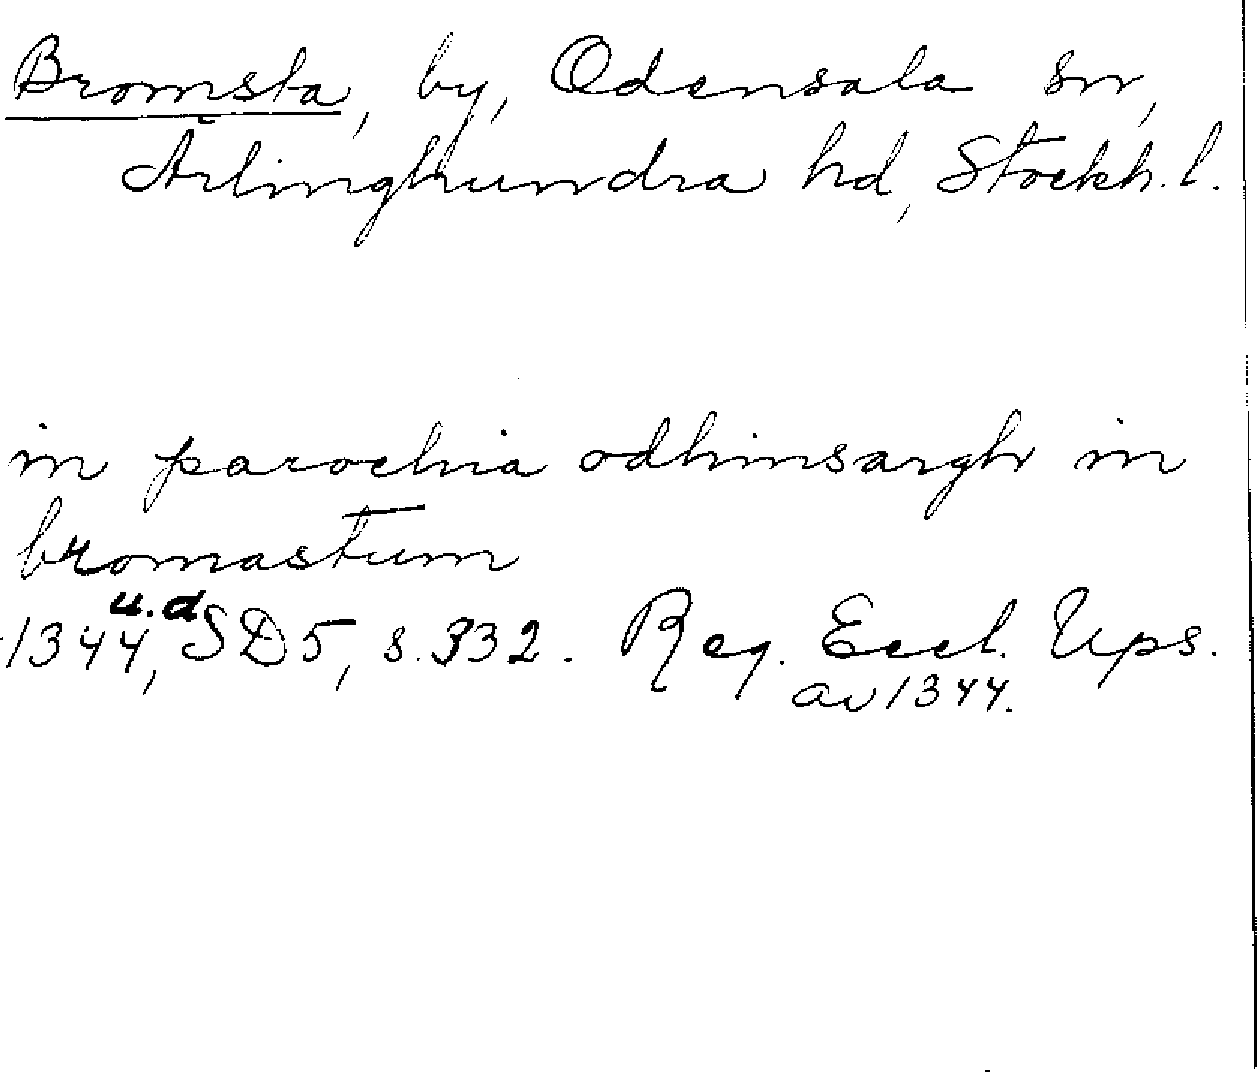 Bromsta, by, Odensala sn,
Ärlinghundra hd, Stockh. l.
in parochia odhinsargh in
bromastum
u.d
1344, SD5, s. 332. Reg. Eccl. Ups.
av 1344.